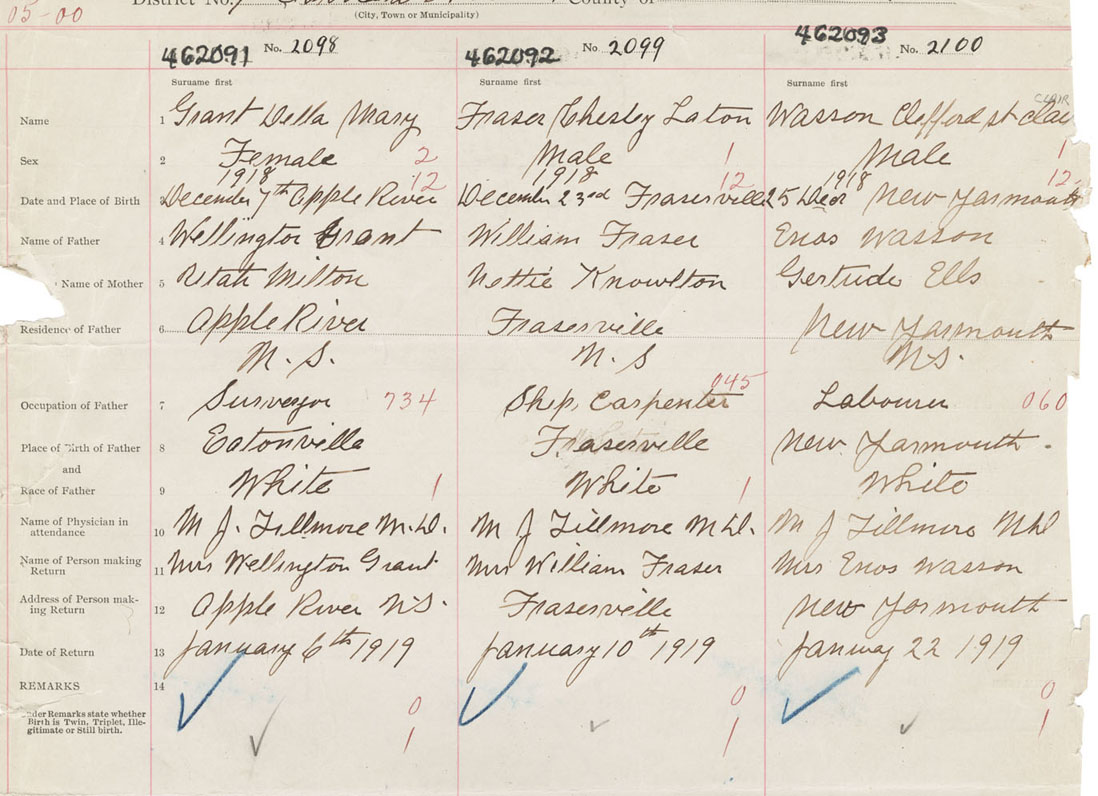 05-00
District No. County of
(City, Town or Municipality)
462091 No. 2098 462092 No. 2099 462093 No. 2100
Surname first Surname first Surname first
CLAIR
Name 1 Grant Della Mary Fraser Chesley Laton Wasson Clefford st Clai
Sex 2 Female 2 Male 1 Male 1
1918 12 1918 12 1918 12
Date and Place of Birth 3 December 7th Apple River December 23rd Fraserville 25 Dec New Yarmouth
Name of Father 4 Wellington Grant William Fraser Enos Wasson
Name of Mother 5 Retah Milton Nettie Knowlton Gertrude Ells
Residence of Father 6 Apple River Fraserville New Yarmouth
N.S. N.S N.S.
Occupation of Father 7 Surveyor 734 Ship Carpenter 045 Labourer 060
Place of Birth of Father 8 Eatonville Fraserville New Yarmouth.
and
Race of Father 9 White 1 White 1 White
Name of Physician in
attendance 10 M J. Fillmore M.D. M J Fillmore M.D. M J Fillmore MD
Name of Person making
Return 11 Mrs Wellington Grant Mrs William Fraser Mrs Enos Wasson
Address of Person mak-
ing Return 12 Apple River N.S. Fraserville New Yarmouth
Date of Return 13 January 6th 1919 January 10th 1919 January 22 1919
REMARKS 14
0 0 0
Under Remarks state whether
Birth is Twin, Triplet, Ille-
gitimate or Still birth.
1 1 1